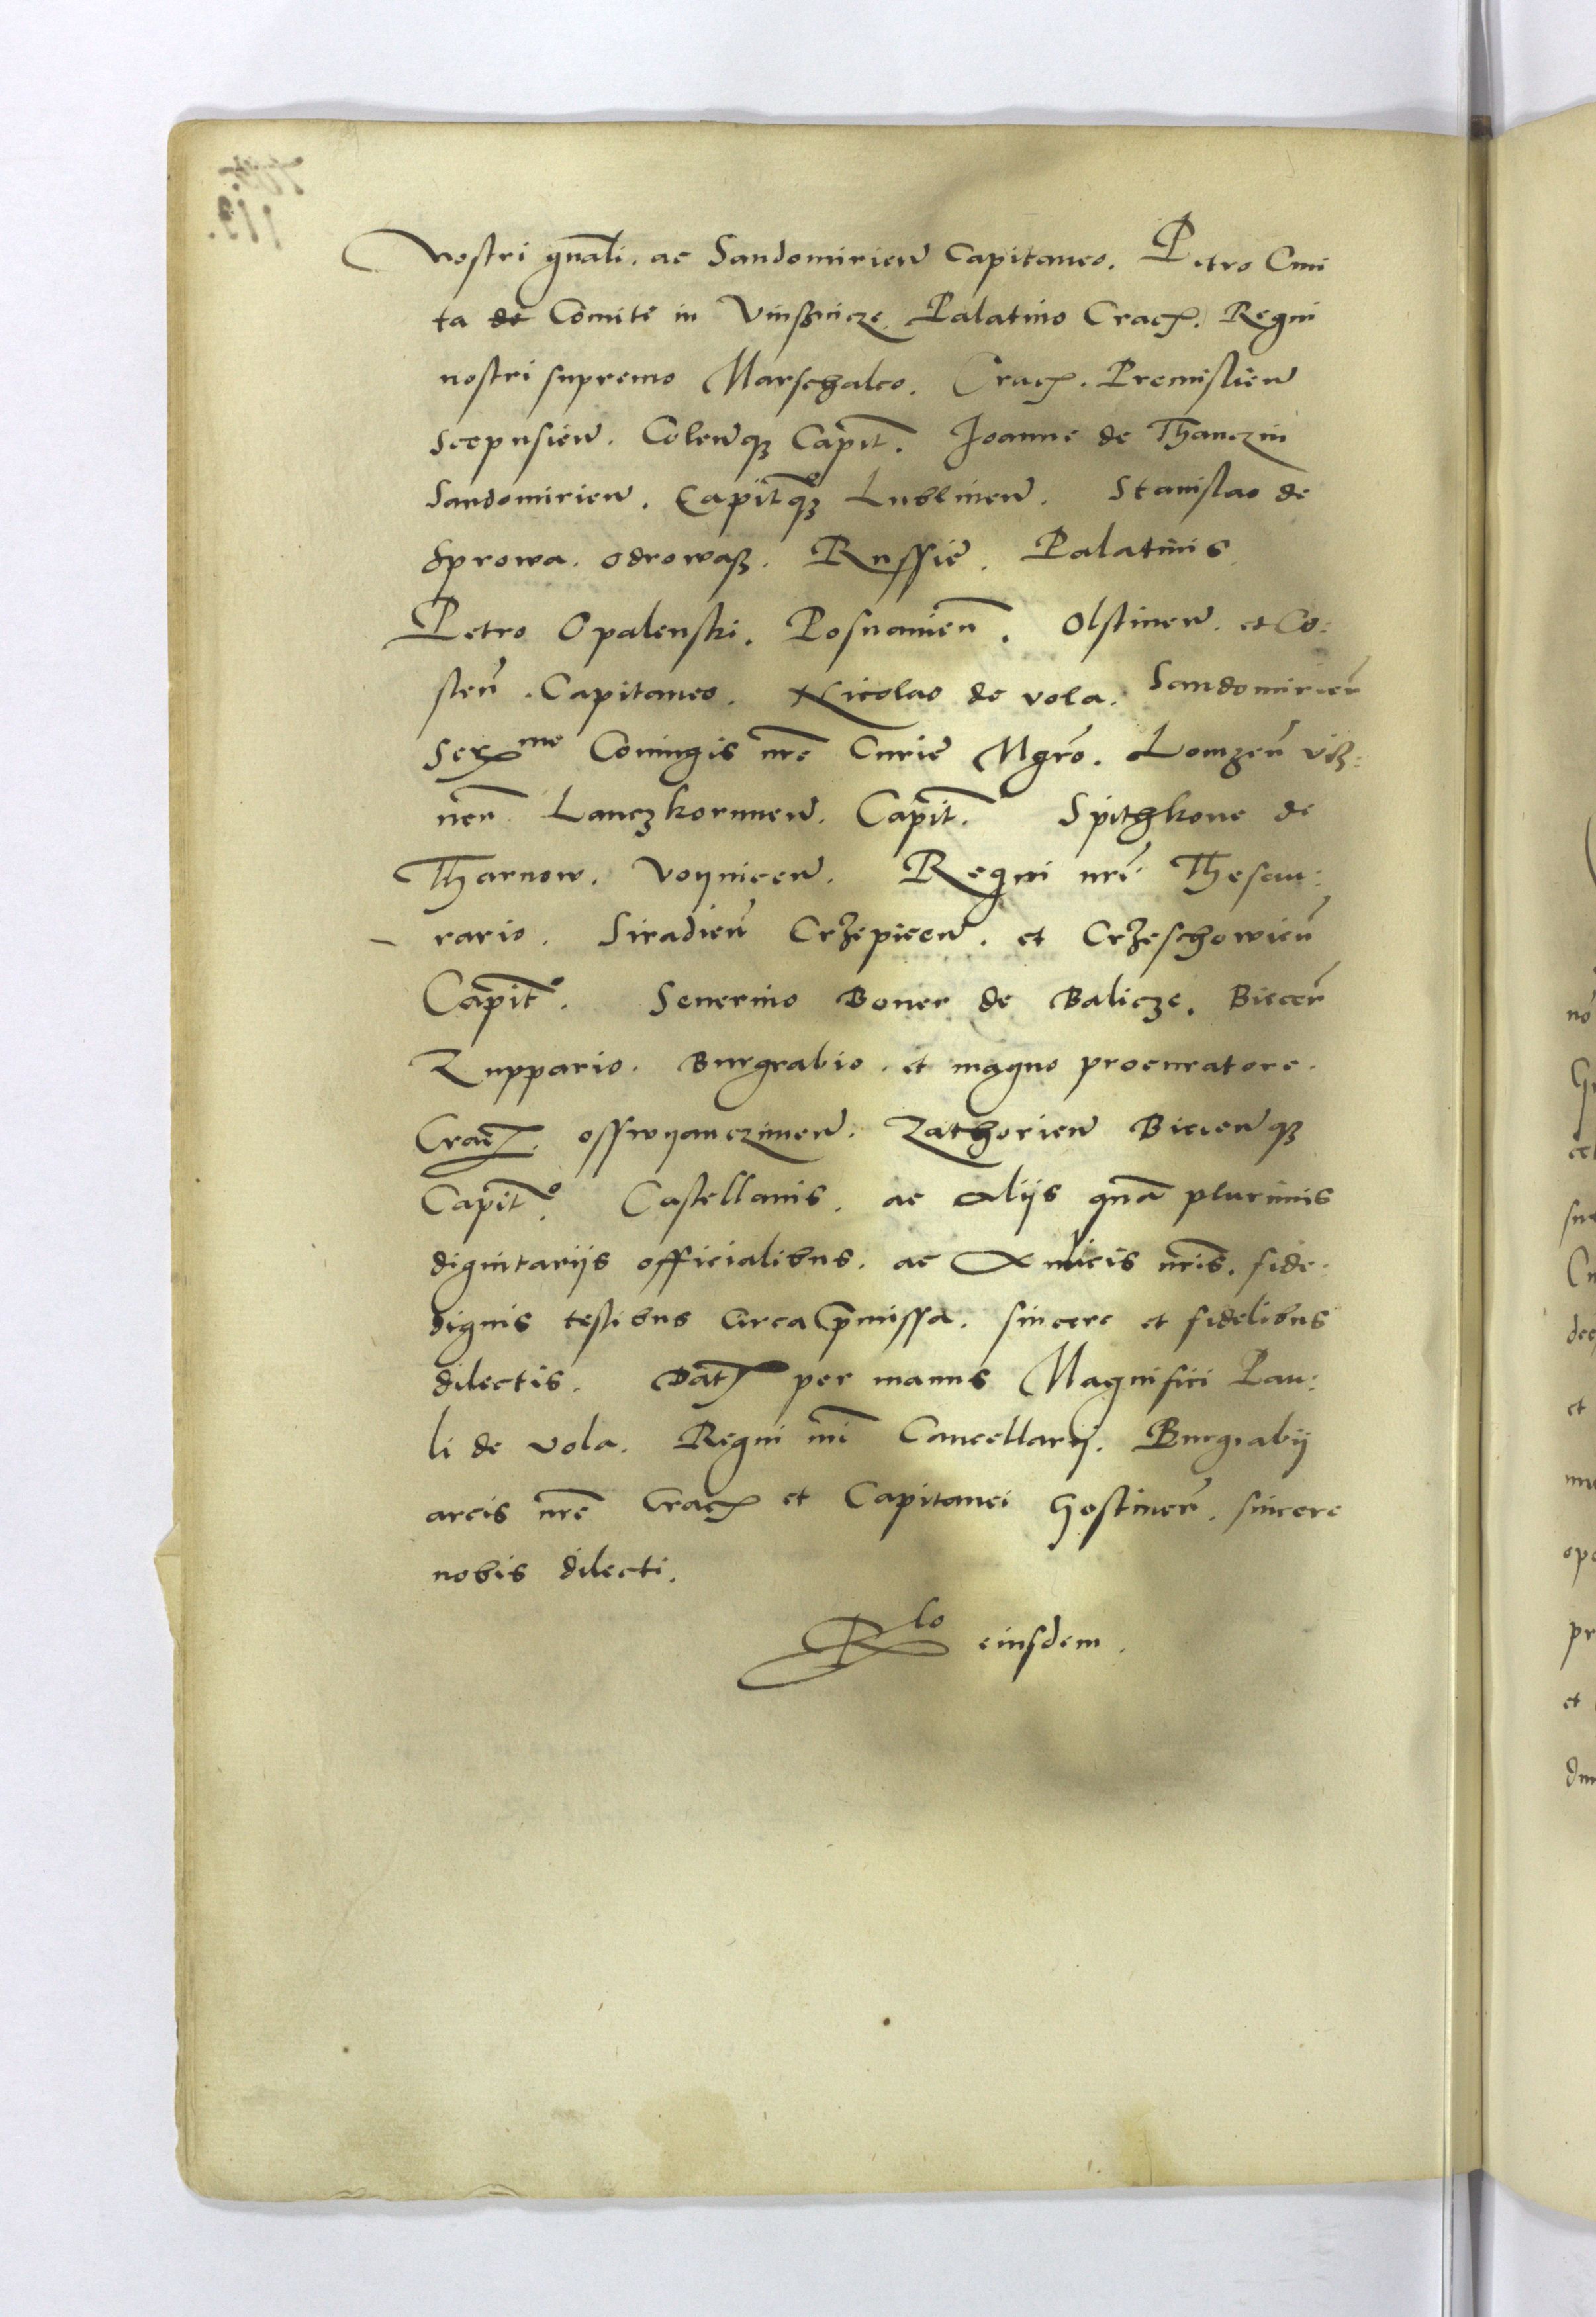 nostri gnãli. ac Sandomirien Capitaneo. Petro Cmi
ta de Comite in Vinsznicze Palatino Crac. Regni
nostri supremo Marschalco. Crac. Premislien
Scepusien. Colenq3 Capit. Joanne de Thanczin
Sandomirien. Capitq3 Lublinen. Stanislao de
Sprowa. odrowasz. Russie. Palatinis
Petro Opalenski. Posnanien. Olstinen. et Co:
sten. Capitaneo. Nicolao de vola. Sandomirien
Serme Coniugis nrẽ Curie Mgrõ. Lomzen visz:
nen. Lanczkorunen. Capit. Spithkone de
Tharnow. Voynicen. Regni nrĩ Thesau:
rario. Siradien Crzepicen. et Crzeschowien
Capito. Seuerino Boner de Balicze. Biecen
Zuppario. Burgrabio. et magno procuratore.
Crac. osswyanczimen. Zathorien Biecenq3
Capito. Castellanis. ac alijs quã plurimis
dignitarijs officialibus. ac Amicis nrĩs. fide:
dignis testibus circa pmissa. sincere et fidelibus
dilectis. Dat per manus Magnifici Pau:
li de vola. Regni nrĩ Cancellarij. Burgrabij
arcis nrẽ Crac et Capitanei Gostinen. sincere
nobis dilecti.
Rlo eiusdem.